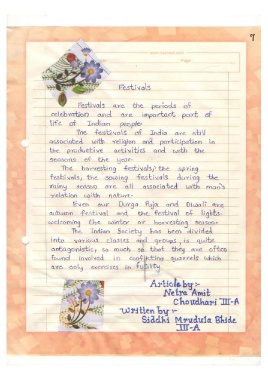 7
Festivals
Festivals are the periods of
celebration and are important part of
life of Indian people.
The festivals of India are still
associated with religion and participation in
the productive activities and with the
seasons of the year.
The harvesting festivals, the spring
festivals, the sowing festivals during the
rainy season are all associated with man's
relation with nature.
Even our Durga Puja and Diwali are
autumn festival and the festival of lights
welcoming the winter or harvesting season.
The Indian Society has been divided
into various classes and groups, is quite
antagonistic, so much so that they are often
found involved in conflicting quarrels which
are only exercises in futility.
Article by :-
Netra Amit
Choudhari III-A
Written by :-
Siddhi Mrudula Bhide
III-A